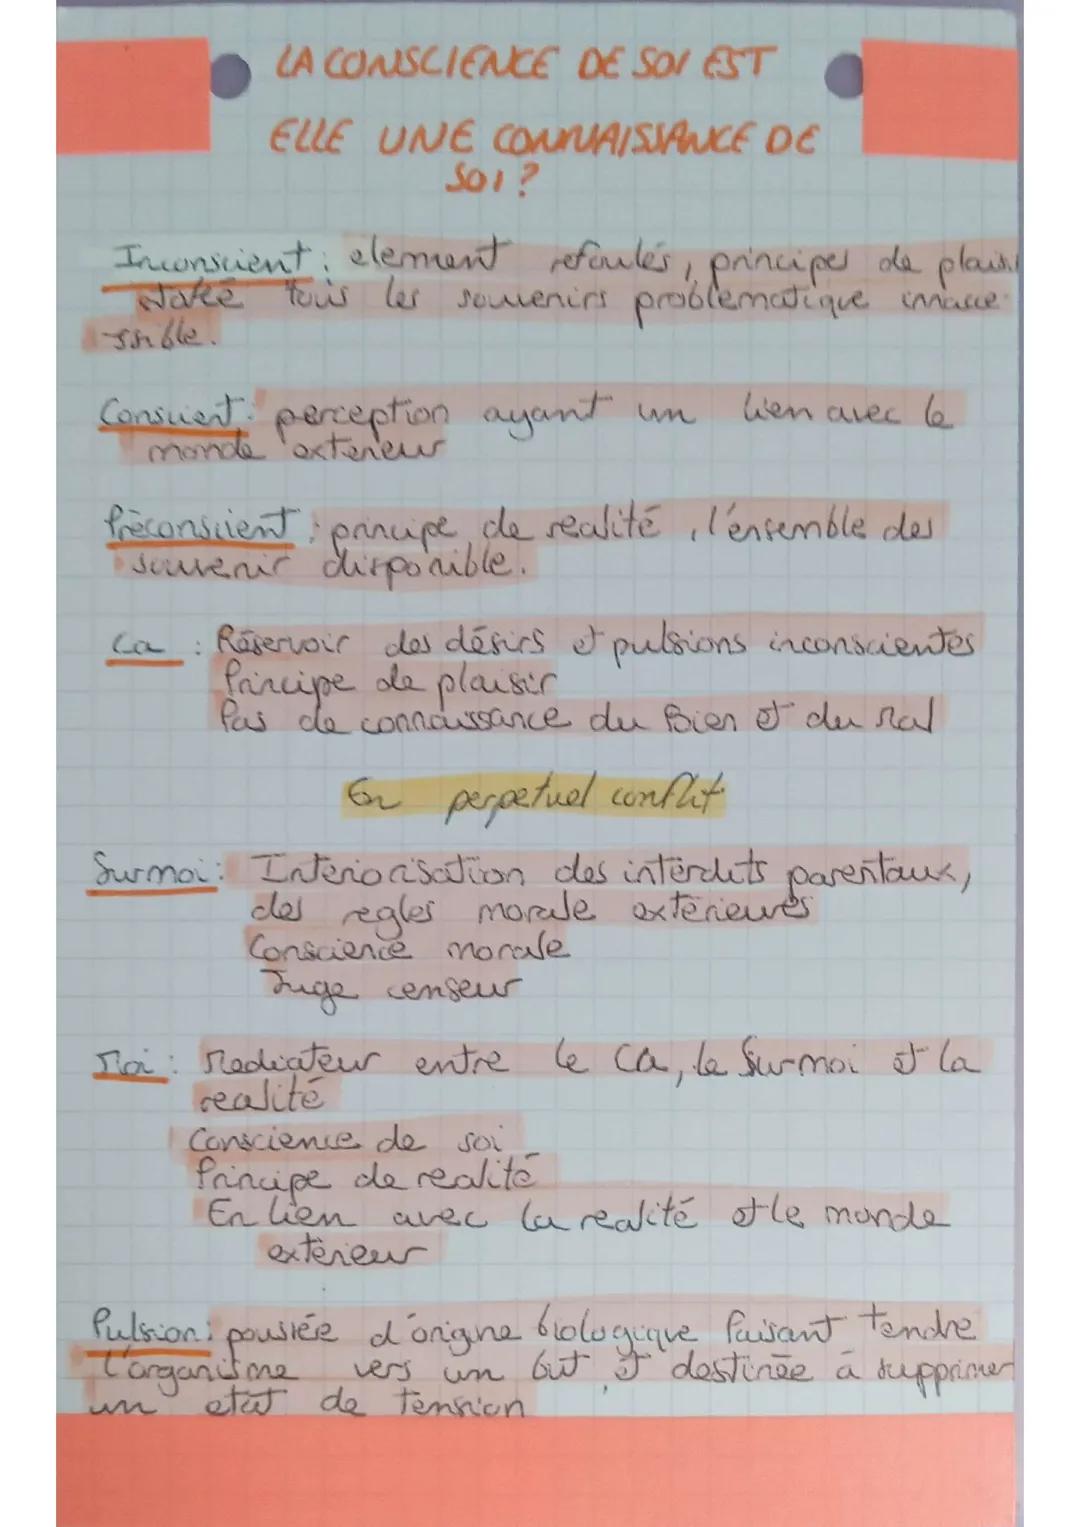 LA CONSCIENCE DE SOI EST
ELLE UNE CONNAISSANCE DE
SOI ?
Inconscient : element refoulés, principes de plaisi
stoké tous les souvenirs problématique innacce
ssible.
Conscient : perception ayant un lien avec le
monde exterieur
Préconscient : principe de realité, l'ensemble des
souvenir disponible.
Ca : Réservoir des désirs et pulsions inconscientes
Principe de plaisir
Pas de connaissance du Bien et du Mal
En perpetuel conflit
Surmoi : Interiorisation des interdits parentaux,
des regles morale exterieures
Conscience morale
Juge censeur
Moi : Mediateur entre le Ca, le Surmoi et la
realité
Conscience de soi
Principe de realité
En lien avec la realité et le monde
exterieur
Pulsion : poussée d'origine biologique faisant tendre
l'organisme vers un but et destinée à supprimer
un etat de tension